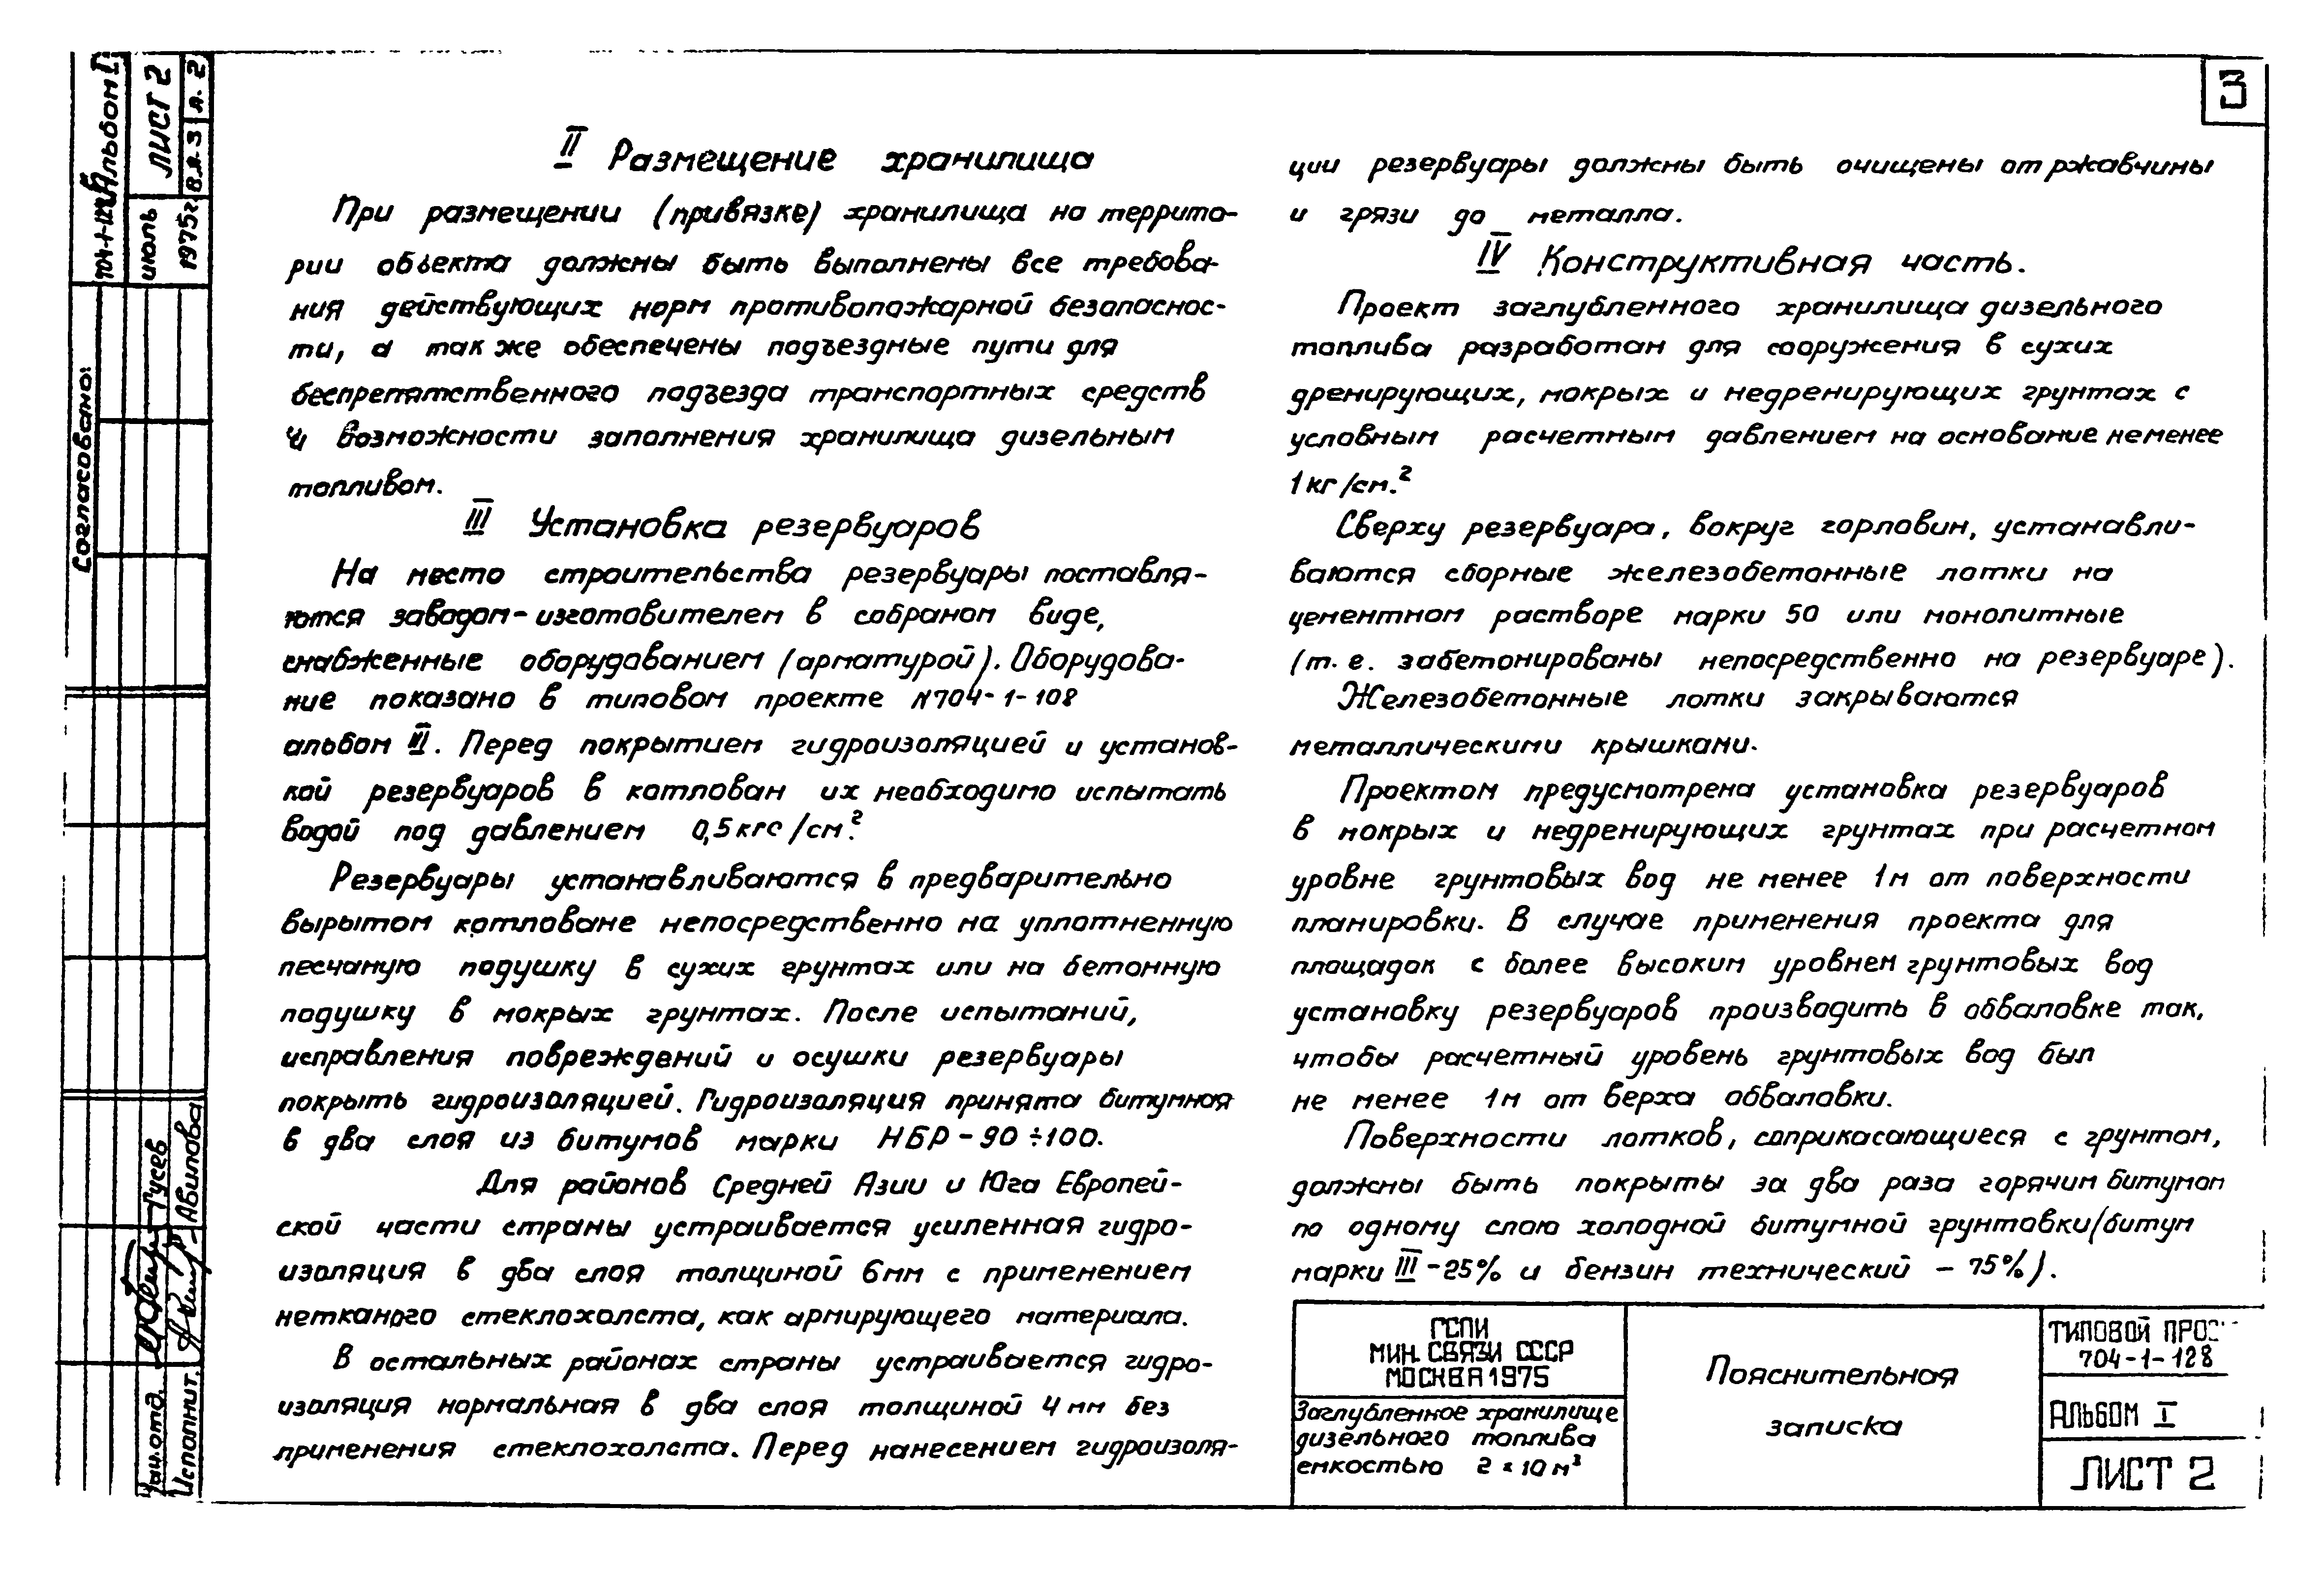 3
II Размещение хранилища
При размещении (привязке) хранилища на террито-
рии объекта должны быть выполнены все требова-
ния действующих норм противопожарной безопаснос-
ти, а так же обеспечены подъездные пути для
беспрепятственного подъезда транспортных средств
и возможности заполнения хранилища дизельным
топливом.
III Установка резервуаров
На место строительства резервуары поставля-
ются заводом-изготовителем в собраном виде,
снабженные оборудованием (арматурой). Оборудова-
ние показано в типовом проекте N704-1-108
альбом III. Перед покрытием гидроизоляцией и установ-
кой резервуаров в котлован их необходимо испытать
водой под давлением 0,5 кгс/см.²
Резервуары устанавливаются в предварительно
вырытом котловане непосредственно на уплотненную
песчаную подушку в сухих грунтах или на бетонную
подушку в мокрых грунтах. После испытаний,
исправления повреждений и осушки резервуары
покрыть гидроизоляцией. Гидроизоляция принята битумная
в два слоя из битумов марки НБР-90÷100.
Для районов Средней Азии и Юга Европей-
ской части страны устраивается усиленная гидро-
изоляция в два слоя толщиной 6мм с применением
нетканого стеклохолста, как армирующего материала.
В остальных районах страны устраивается гидро-
изоляция нормальная в два слоя толщиной 4мм без
применения стеклохолста. Перед нанесением гидроизоля-
ции резервуары должны быть очищены от ржавчины
и грязи до металла.
IV Конструктивная часть.
Проект заглубленного хранилища дизельного
топлива разработан для сооружения в сухих
дренирующих, мокрых и недренирующих грунтах с
условным расчетным давлением на основание неменее
1кг/см.²
Сверху резервуара, вокруг горловин, устанавли-
ваются сборные железобетонные лотки на
цементном растворе марки 50 или монолитные
(т.е. забетонированы непосредственно на резервуаре).
Железобетонные лотки закрываются
металлическими крышками.
Проектом предусмотрена установка резервуаров
в мокрых и недренирующих грунтах при расчетном
уровне грунтовых вод не менее 1м от поверхности
планировки. В случае применения проекта для
площадок с более высоким уровнем грунтовых вод
установку резервуаров производить в обваловке так,
чтобы расчетный уровень грунтовых вод был
не менее 1м от верха обваловки.
Поверхности лотков, соприкасающиеся с грунтом,
должны быть покрыты за два раза горячим битумом
по одному слою холодной битумной грунтовки (битум
марки III-25% и бензин технический - 75%).
ГСПИ
МИН. СВЯЗИ СССР
МОСКВА 1975
Заглубленное хранилище
дизельного топлива
емкостью 2×10м³
Пояснительная
записка
ТИПОВОЙ
704-1-128
АЛЬБОМ I
ЛИСТ 2
704-1-128 Альбом I
ЛИСТ 2
июль 1975г.
В.Д-3 л. 2
Согласовано:
Нач.отд. Гусев
Исполнит. Авилова